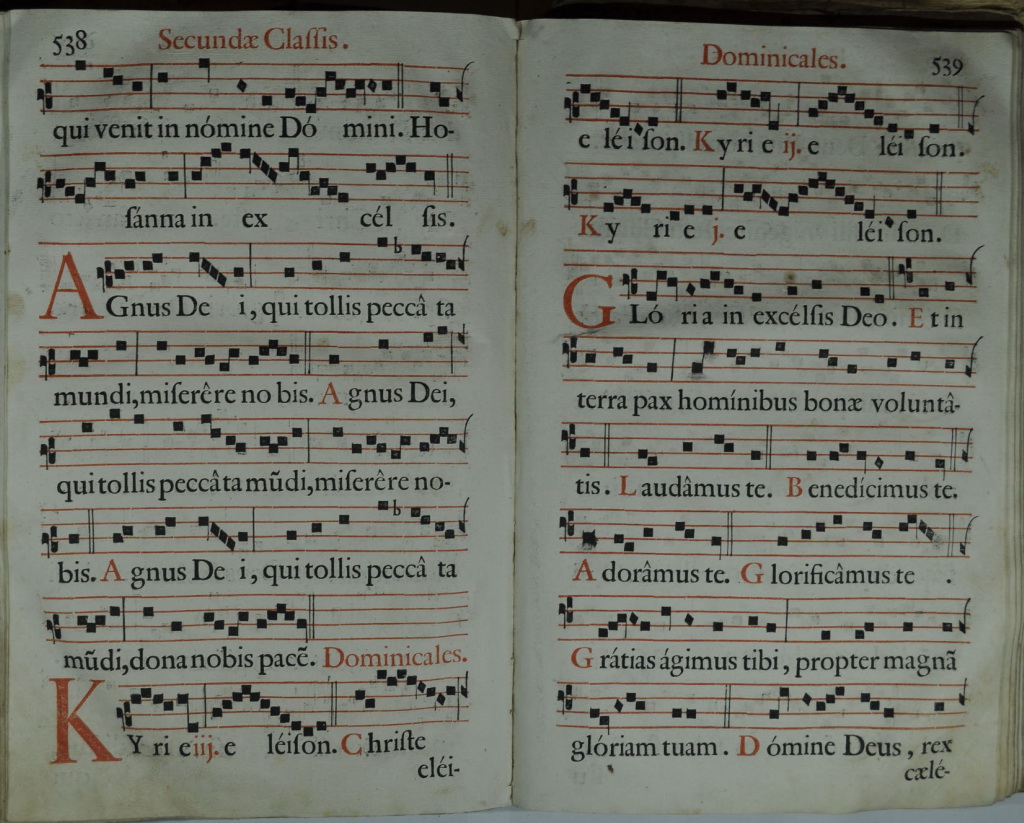 538 Secundæ Claſſis.
qui venit in nómine Dó mini. Ho-
ſánna in ex cél ſis.
AGnus De i, qui tollis peccâ ta
mundi, miſerêre no bis. A gnus Dei,
qui tollis peccâta mũdi, miſerêre no-
bis. A gnus De i, qui tollis peccâ ta
mũdi, dona nobis pacẽ. Dominicales.
KY ri e iij. e léiſon. Chriſte
eléi-
Dominicales. 539
e léi ſon. Ky ri e ij. e léi ſon.
Ky ri e j. e léi ſon.
GLó ri a in excélſis Deo. Et in
terra pax homínibus bonæ voluntâ-
tis. L audâmus te. B enedícimus te.
A dorâmus te. G lorificâmus te .
G rátias ágimus tibi, propter magnã
glóriam tuam. D ómine Deus, rex
cælé-